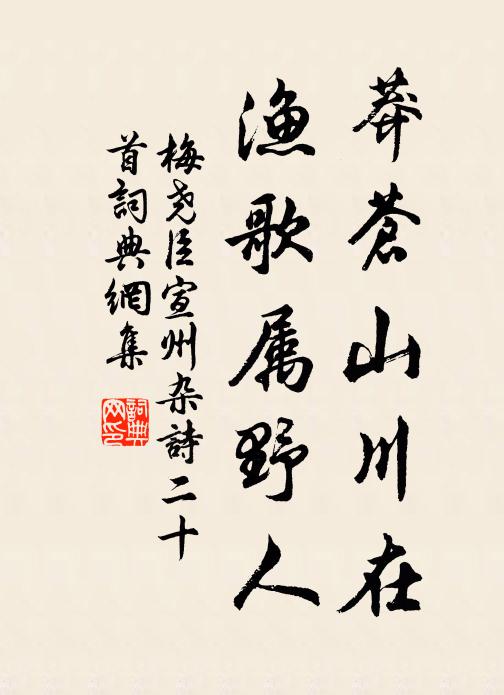 莽苍山川在
渔歌属野人
梅尧臣宣州杂詩二十
首詞典網集
詞典
网印